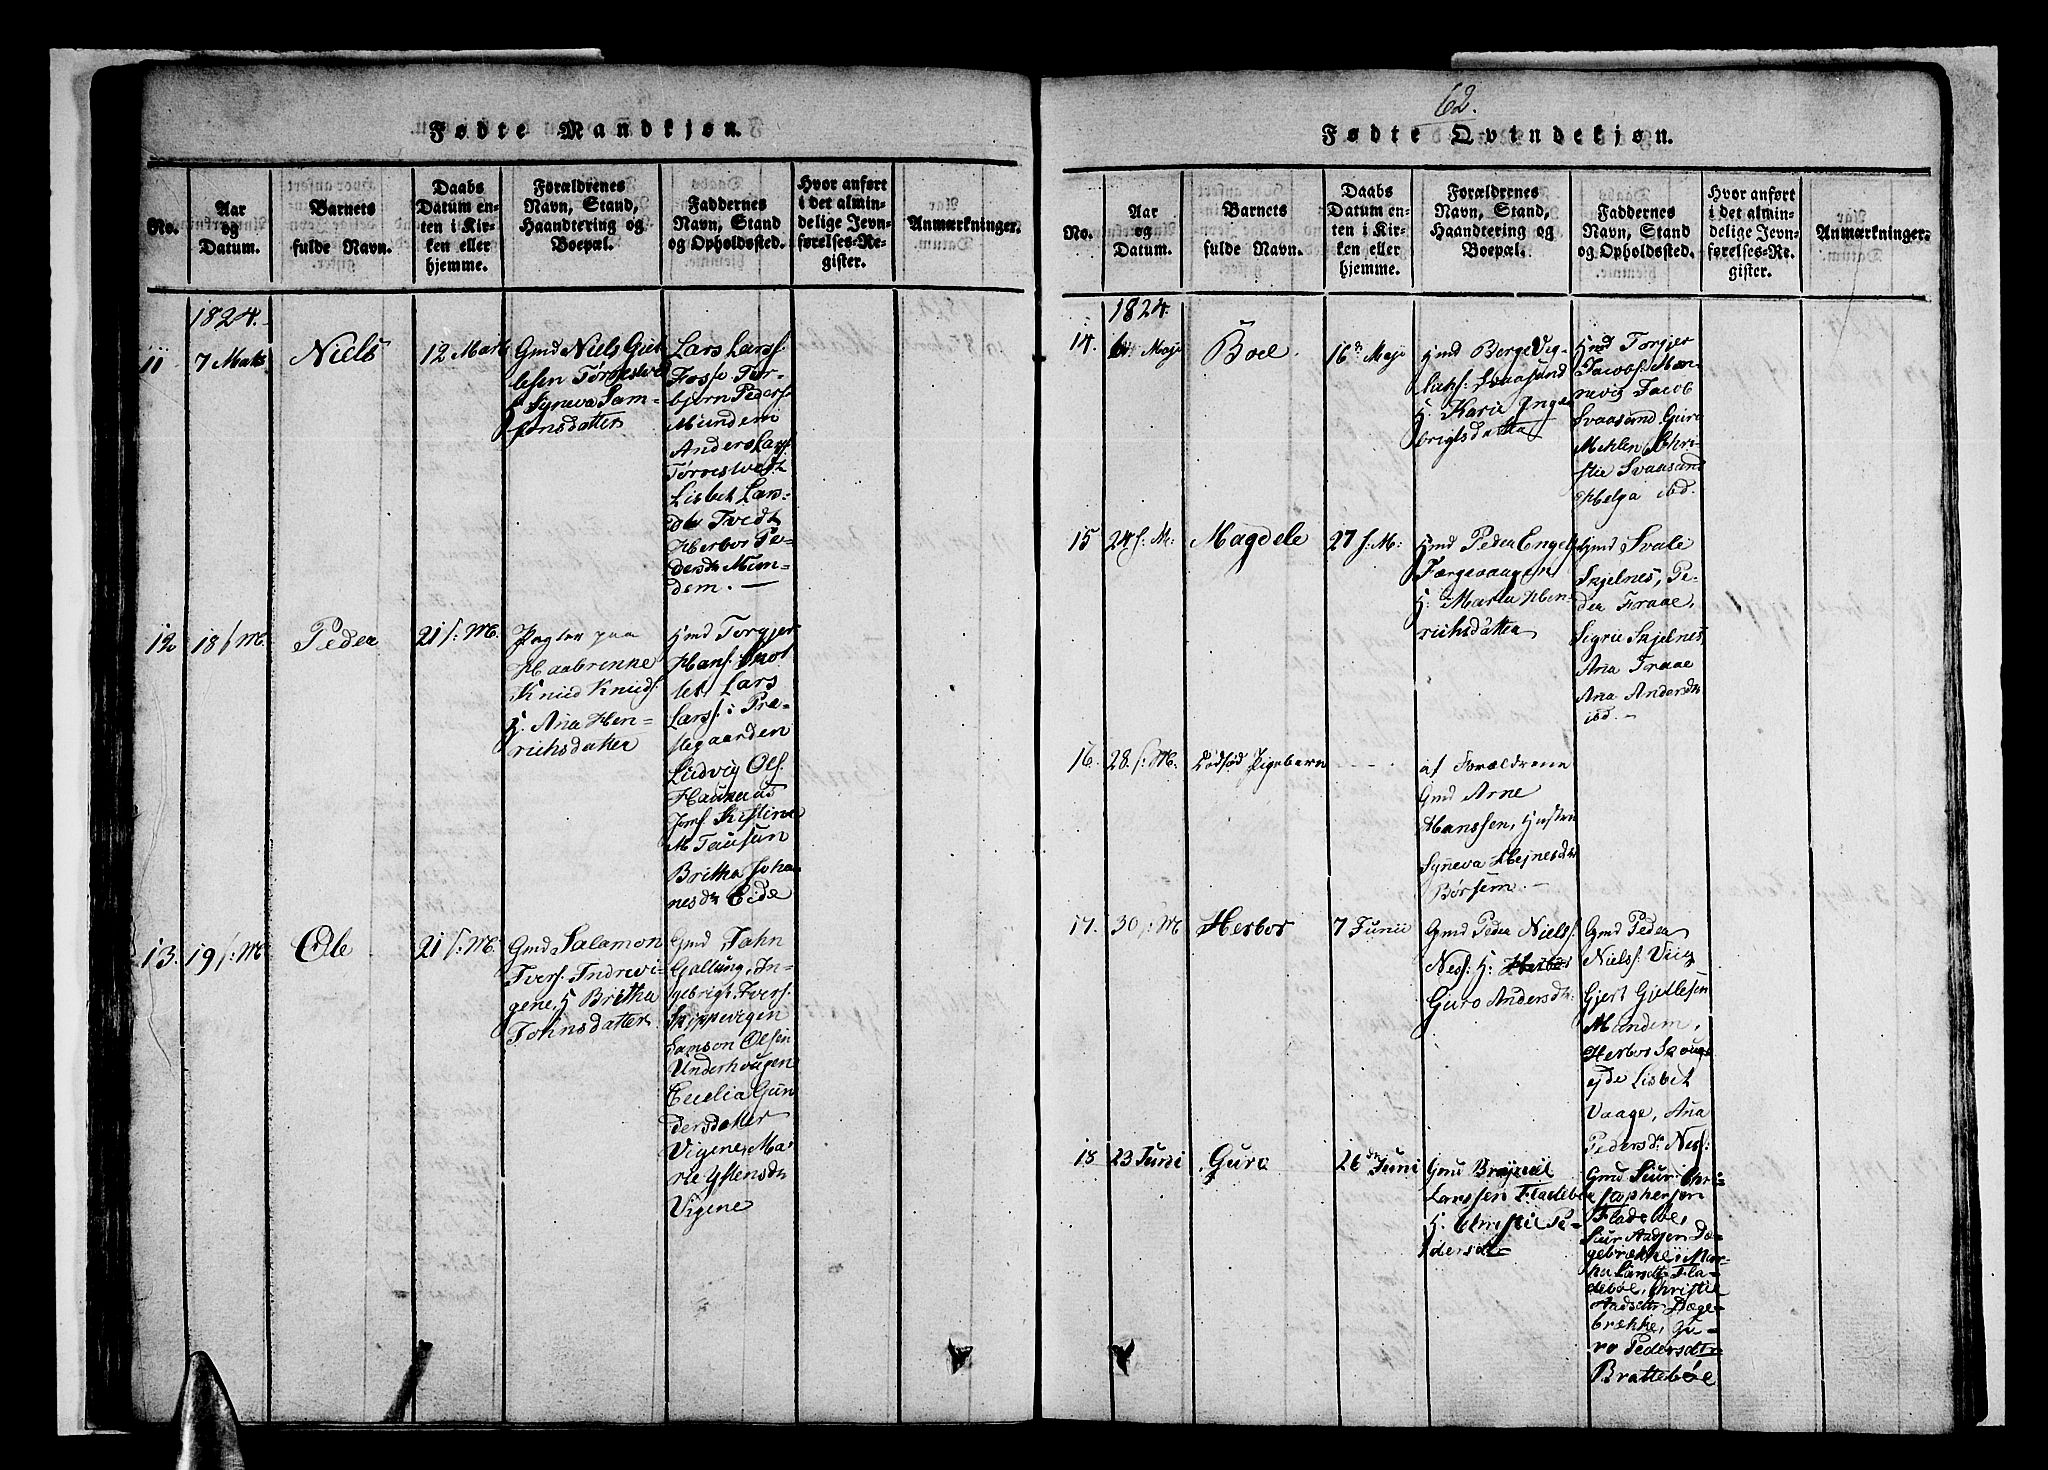 62.
Fødte Mandkjøn.
No.
Aar
og
Datum.
Barnets
fulde Navn.
Daabs
Datum en-
ten i Kir-
ken eller
hjemme.
Forældrenes
Navn, Stand,
Haandtering og
Boepæl.
Faddernes
Navn, Stand
og Opholdssted.
Hvor anført
i det almin-
delige Jevn-
førelses-Re-
gister.
Anmærkninger.
1824.
11
7 Marts
Niels
12 Marts
Gmd Niels Giet-
lesen
H Syneva Sam-
sonsdatter
Lars Larss.
Fosse Tor-
bjørn Peders.
Mundem
Anders Larss.
Lisbet Lars-
dtr Tvedt
Herbor Pe-
dersdtr Mun-
dem.
12
18 s. M.
Peder
21 s: M.
paa
Haabrenne
Knud Knuds.
H. Ana Hen-
richsdatter
Hmd Torgjer
Hans.
Lars
Larss. i Pre-
stegaarden
Ludvig Ols.
Haukenæs
Jomf. Kistine
M Tausun
Britha Joha-
nesdtr Eide
13.
19 s: M.
Ole
21 s. M.
Gmd Salamon
Ivers. Indrevi-
gene, H Britha
Johnsdatter
Gmd John
Gallung, In-
gebrigt Ivers.
Skippevigen
Samson Olsen
Underhougen
Cecelia Gun-
dersdatter
Vigene, Ma-
rie
Vigene
Fødte Qvindekjøn.
No.
Aar
og
Datum.
Barnets
fulde Navn.
Daabs
Datum en-
ten i Kir-
ken eller
hjemme.
Forældrenes
Navn, Stand,
Haandtering og
Boepæl.
Faddernes
Navn, Stand
og Opholdssted.
Hvor anført
i det almin-
delige Jevn-
førelses-Re-
gister.
Anmærkninger.
1824.
14.
Maji
Boel.
16de Maji
Hmd Berge Vig-
Svaasand
H. Karie Inge-
brigtsdatter
Hmd Torgjer
Jacobs. Mær-
nevig Jacob
Svaasand Guro
Mehlen Chri-
stie Svaasand
Helga ibd.
15
24 s: M:
Magdele
27 s: M:
Hmd Peder Engels.
H: Maria Hen-
richsdatter
Hmd Svale
Skjelnes, Pe-
der Traae,
Sigrie Skjelnes
Ana Traae
Ana Andersdtr
ibd. -
16.
28. s: M.
Dødfød Pigebarn
af Forældrene
Gmd Arne
Hanssen, Hustru
Syneva Hejnesdtr
Børsem. -
17.
30 s: M
Herbor
7 Junii
Gmd Peder Niels.
Ness. H:
Guro Andersdtr:
Gmd Peder
Niels. Viig
Gjert Gjetlesen
Mundem,
Herbor Skouge-
ejde Lisbet
Vaage, Ana
Pedersdtr Ness:
18
23 Juni
Guro
26de Juni
Gmd
Larssen Fladebøe
H: Christie Pe-
dersdtr
Gmd Siur Chri-
stophersøn
Fladebøe,
Siur Dæ-
gebrække, Mar-
tha Larsdtr Fla-
debøe, Christie
Dæge-
brække, Gu-
ro Pedersdtr
Brattebøe